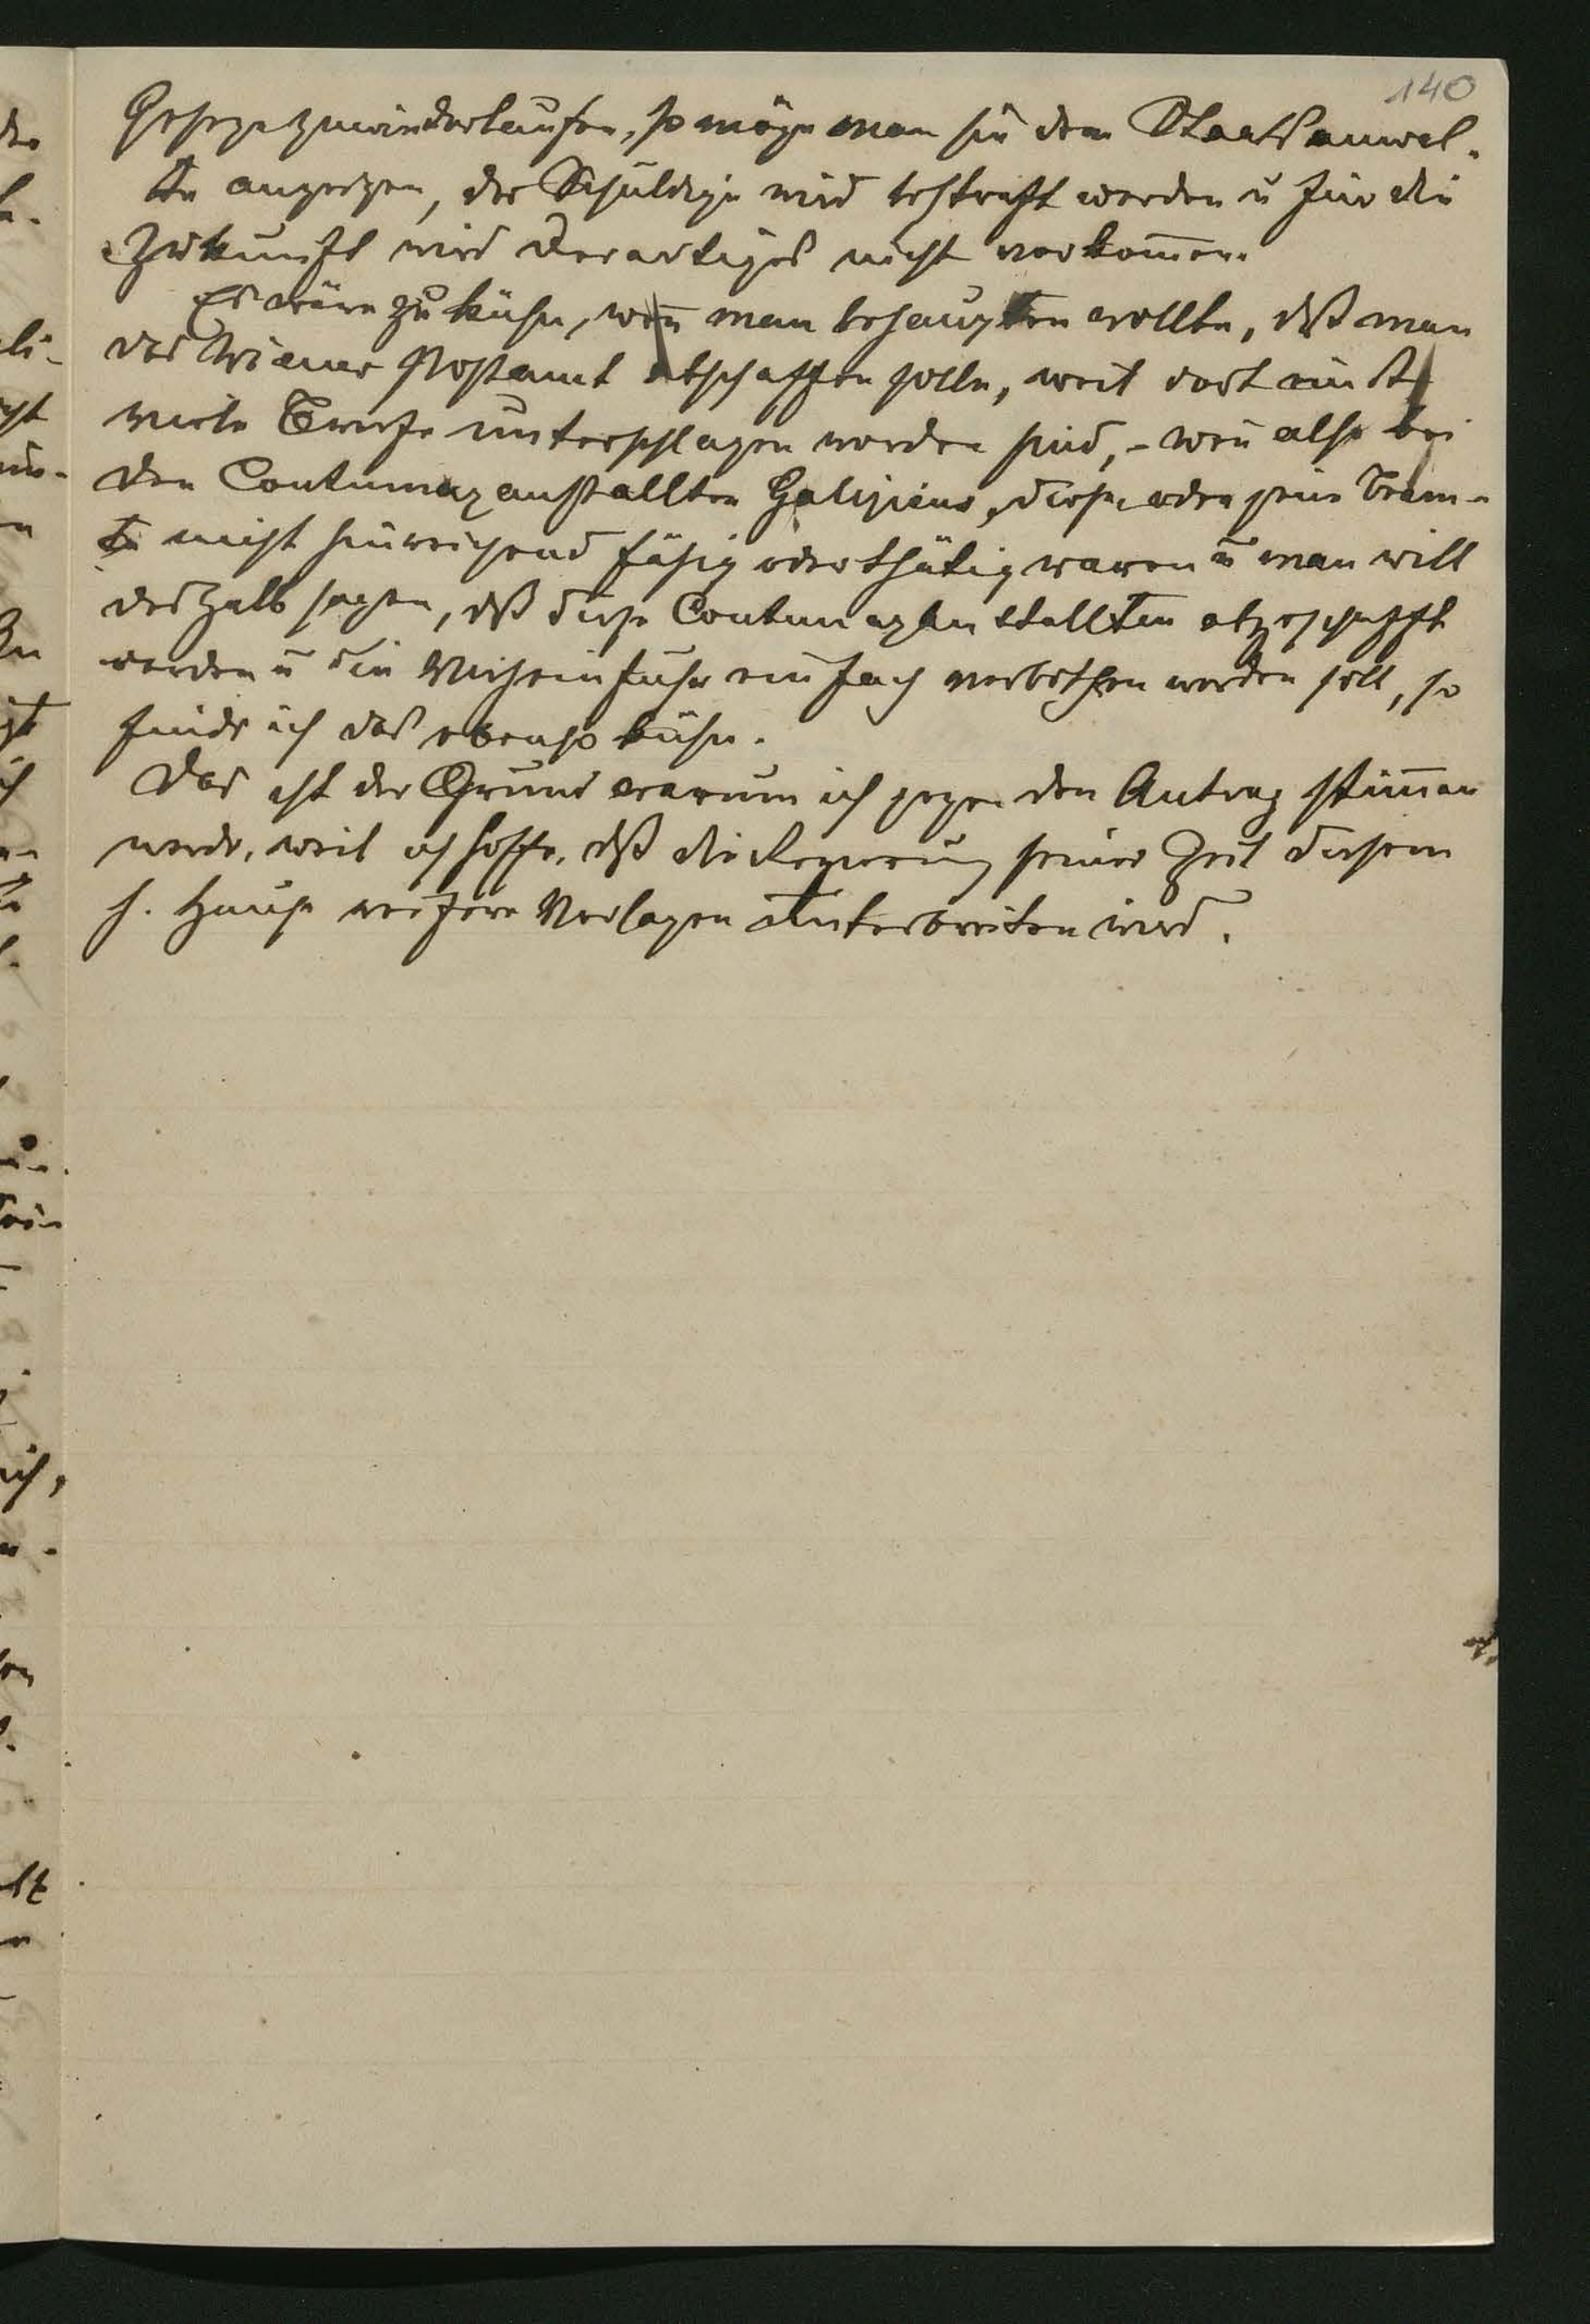 140
Gesetze zuwiderlaufen, so möge man sie dem Staatsanwal-
te anzeigen, der Schuldige wird bestraft werden u für die
Zukunft wird derartiges nicht vorkom̄en.
Es wäre zu kühn, wen̄ man behaupten wollte, dß man
das Wiener Postamt abschaffen solle, weil dort einst
viele Briefe unterschlagen worden sind, - wen̄ also bei
den Contumazanstallten Galiziens, diese oder jene Beam-
te nicht hinreichend fähig oder thätig waren u man will
deshalb sagen, dß diese Contumazanstallten abgeschafft
werden u die Vieheinfuhr einfach verbothen werden soll, so
finde ich das ebenso kühn.
Das ist der Grund warum ich gegen den Antrag stim̄en
werde, weil ich hoffe, dß die Regierung seiner Zeit diesem
h. Hause weitere Vorlagen unterbreiten wird.